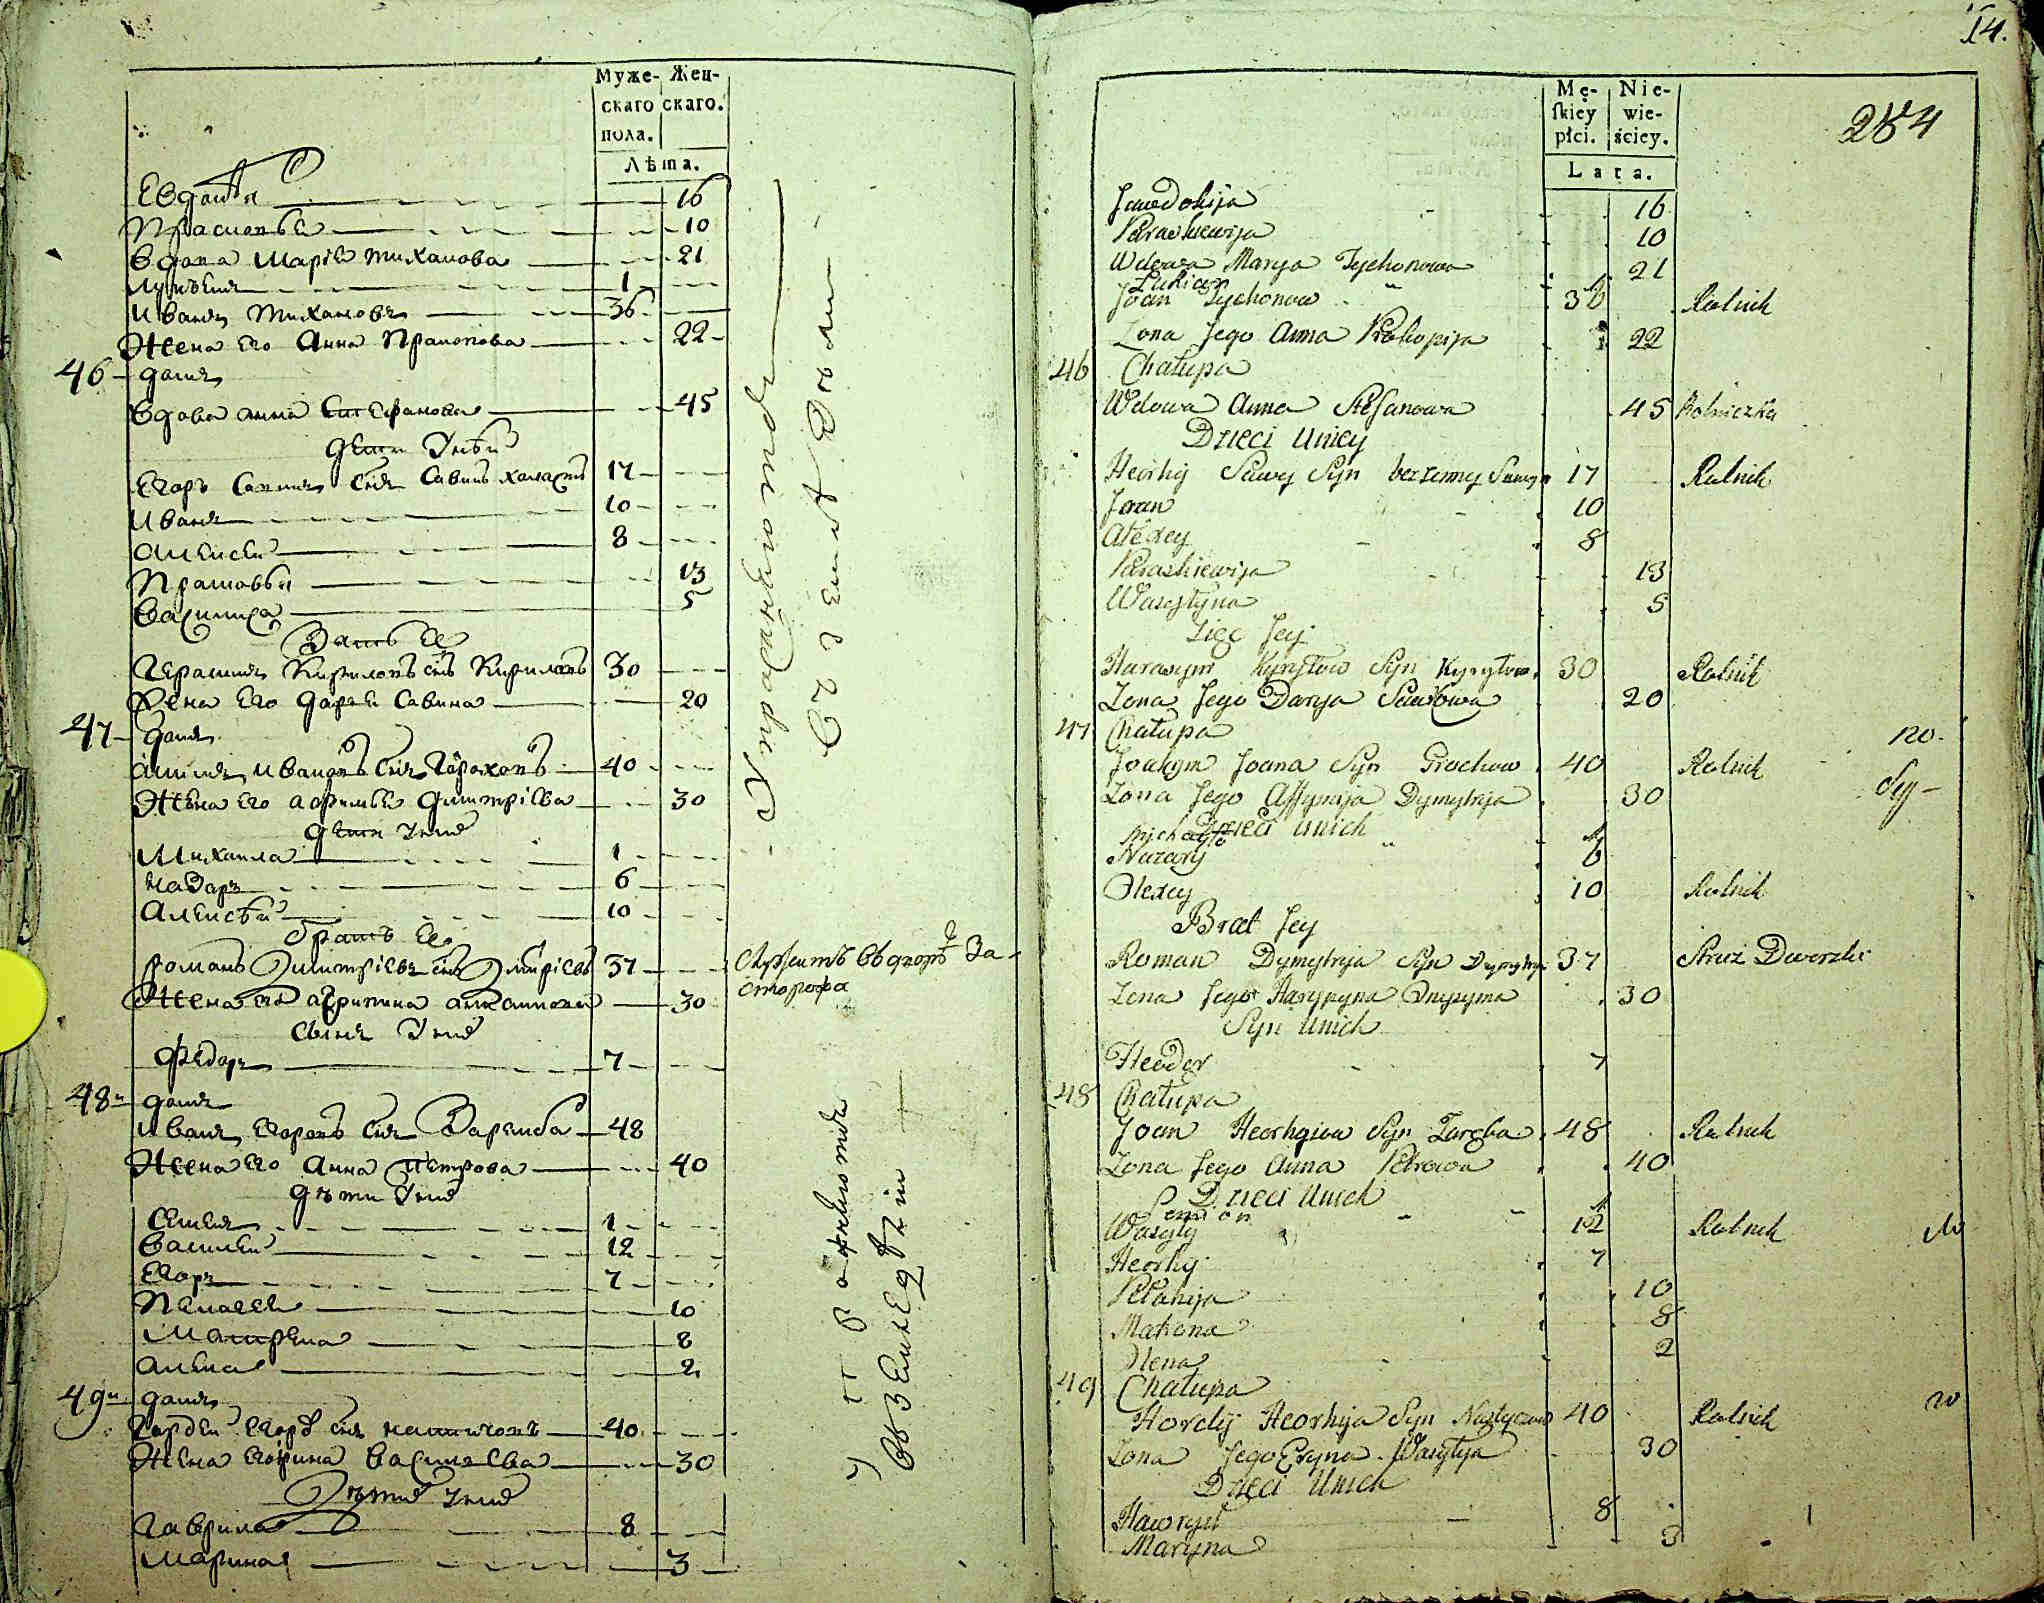 Муже- Жен-
скаго скаго.
пола.
Лѣта.
Евдотя 16
Прасковья 10
вдова Марія тиханова 21
Лукьянъ 1
Иванъ тихановъ 36
Жена его Анна Пракопова 22
46 домъ
вдова анна Стефанова 45
дети унеи
Егоръ Савинъ Снъ Савинъ холастъ 17
Иванъ 10
Алексеи 8
Прасковья 13
Василиса 5
Зать ее
Герасимъ Кириловъ снъ Кириловъ 30
Жена его дарья Савина 20
47 домъ
Акимъ ивановъ Снъ Гороховъ 40
Жена его афимья дмитріева 30
дети унихъ
Михаила 1
Назаръ 6
Алексѣи 10
братъ Ее
романъ Димитріевъ снъ Дмитріевъ 37 Служитъ вдворѣ За
сторожа
Жена его агрипина 30
Сынъ унихъ
Федоръ 7
48 домъ
Иванъ Егоровъ Снъ Заремба 48
Жена его Анна Петрова 40
дѣти унихъ
Семенъ 1
Василеи 12
Егоръ 7
Пелагея 10
Матрена 8
Алена 2
49 домъ
Гордеи Егоровъ снъ 40
Жена ірина Василева 30
Дѣти унихъ
Гаврила 8
Марина 3
14.
284
Mę- Nie-
skiey wie-
płci. ściey.
Lata.
Jewdokija 16
Paraskiewija 10
Wdowa Marya Tychonowa 21
Łukian 1
Joan Tychonow 36 Rolnik
Zona Jego Anna Prokopija 22
46 Chałupa
Wdowa Anna Stefanowa 45 Rolniczka
Dzieci Uniey
Heorhij Sawy Syn bezzenny 17 Rolnik
Joan 10
Alexey 8
Paraskiewija 13
Wasyłyna 5
Zięc Jey
Harasym Kyryłow Syn Kyryłow 30 Rolnik
Zona Jego Darya Sawowa 20
47 Chałupa
Joakym Joana Syn Grochow 40 Rolnik
Zona Jego Affymija Dymytrija 30
Dzieci Unich
Michayło 1
Nazary 6
Olexey 10 Rolnik
Brat Jey
Roman Dymytrija Syn Dymytr 37 Struz Dworski
Zona Jego Harypyna 30
Syn Unich
Heodor 7
48 Chałupa
Joan Heorhyiow Syn Zaręba 48 Rolnik
Zona Jego Anna Petrowa 40
Dzieci Unich
Semion 1
Wasyly 12 Rolnik
Heorhy 7
Pełahija 10
Matrona 8
Olena 2
49 Chałupa
Hordy Heorhija Syn 40 Rolnik
Zona Jego Eryna Wasylya 30
Dzieci Unich
Hawryił 8
Maryna 3